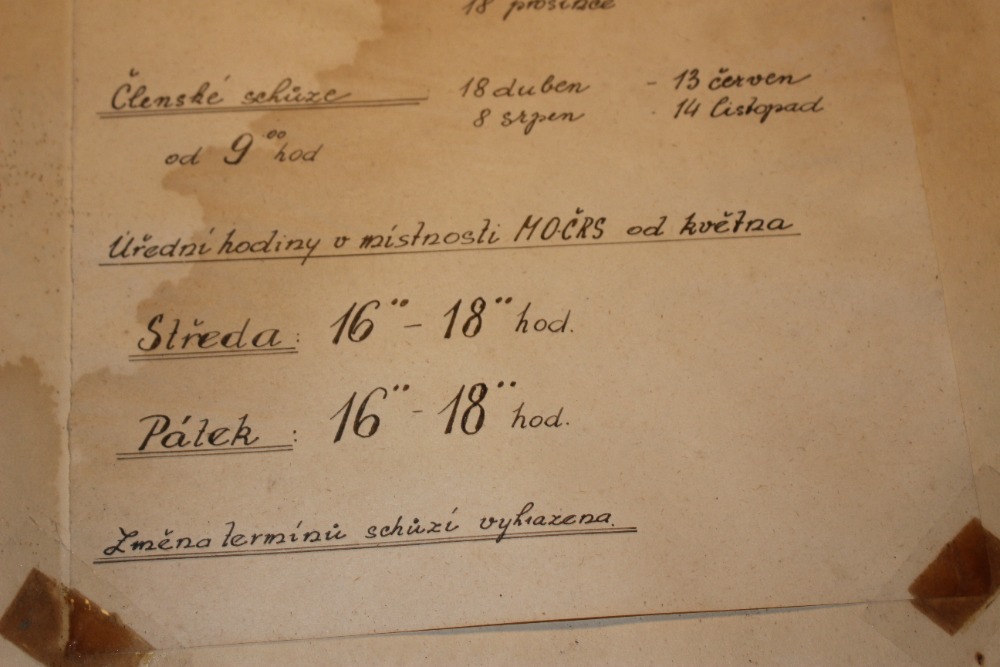 18 prosince
Členské schůze 18 duben - 13 červen
8 srpen - 14 listopad
od 9°° hod
Úřední hodiny v místnosti MO-ČRS od května
Středa: 16°° - 18°° hod.
Pátek: 16°° - 18°° hod.
Změna termínů schůzí vyhrazena.